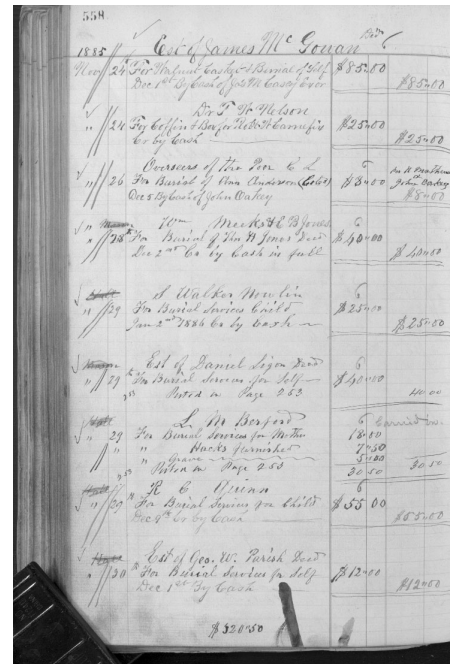 558
1885 Est of James McGowan
Nov 24 For Walnut Casket & Burial of Self $85.00
Dec 1st By Cash of Jos M Casey Exor $85.00
Dr T W Nelson
" 24 For Coffin & Box for $25.00
Cr by Cash $25.00
Overseers of the Poor 6
" 26 For Burial of Ann Anderson $8.00 John Oakey
Dec 5 By Cash of John Oakey $8.00
Wm Meeks & 6
" 28th For Burial of Thos H Jones Decd $40.00
Dec 2nd Cr by Cash in full $40.00
S Walker Nowlin 6
" 29 For Burial Services Child $25.00
Jan 2nd 1886 Cr by Cash $25.00
Est of Daniel Decd 6
" 29 For Burial Services for Self $40.00
253 Posted on Page 253 40.00
L M 6 Carried
" 29 For Burial Services for Mother 18.00
" " Hacks furnished 7.50
" Grave 5.00
253 Posted on Page 253 30.50 30.50
R C Quinn 6
" 29 For Burial Services for Child $55.00
Dec 9th Cr by Cash $55.00
Est of Geo. W. Parish Decd
" 30 For Burial Services for Self $12.00
Dec 1st By Cash $12.00
$320.50